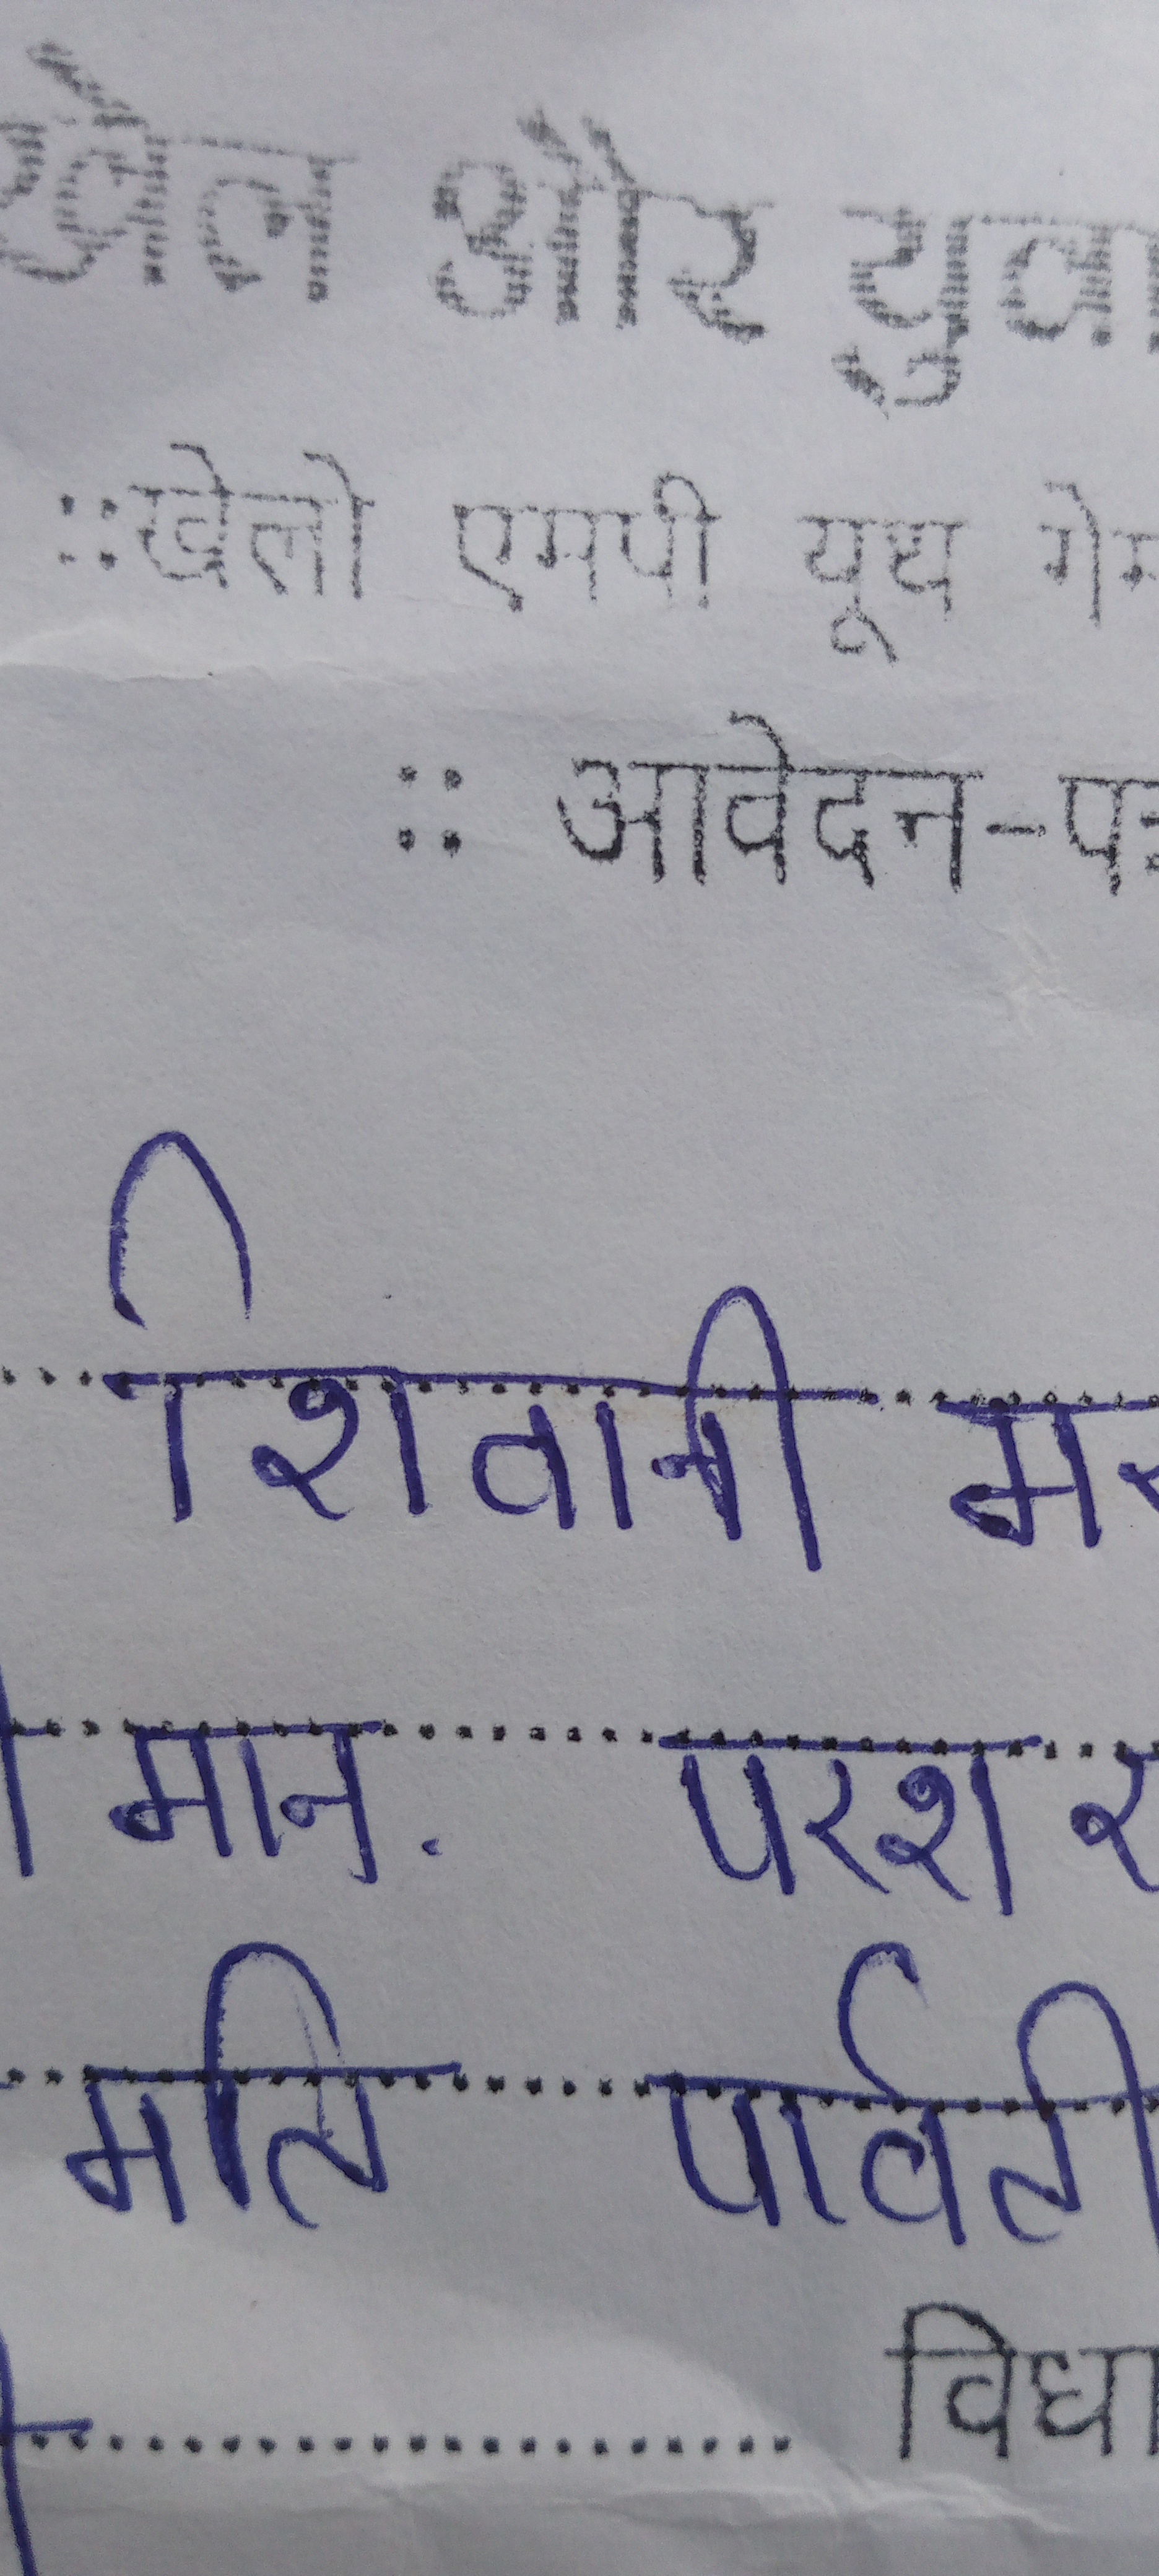 खेल और युवा
::खेलो एमपी यूथ गेम
:: आवेदन-पत्र
शिवानी
मान. परश
मति पार्वती
विधा